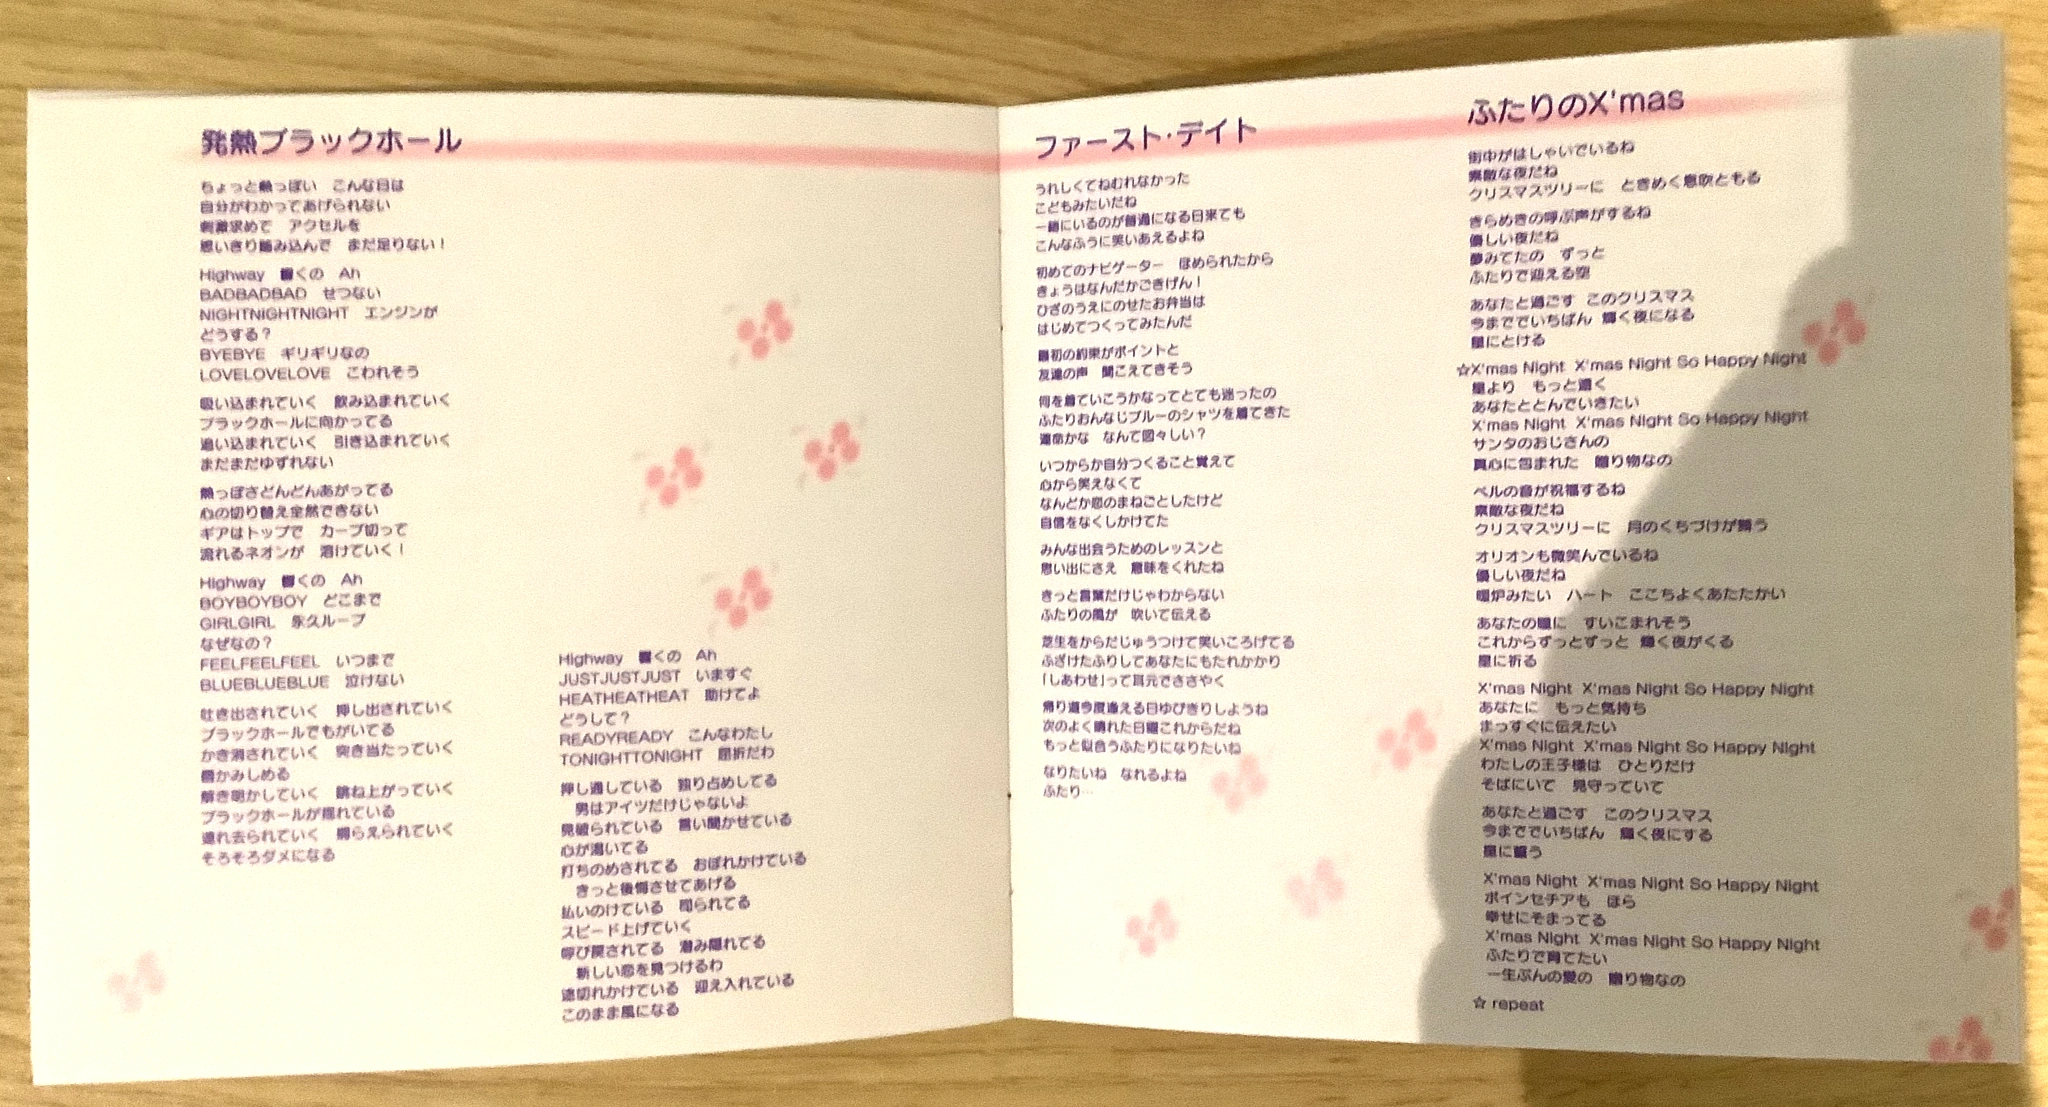 発熱ブラックホール
ちょっと熱っぽい　こんな日は
自分がわかってあげられない
刺激求めて　アクセルを
思いきり踏み込んで　まだ足りない！
Highway　響くの　Ah
BADBADBAD　せつない
NIGHTNIGHTNIGHT　エンジンが
どうする？
BYEBYE　ギリギリなの
LOVELOVELOVE　こわれそう
吸い込まれていく　飲み込まれていく
ブラックホールに向かってる
追い込まれていく　引き込まれていく
まだまだゆずれない
熱っぽさどんどんあがってる
心の切り替え全然できない
ギアはトップで　カーブ切って
流れるネオンが　溶けていく！
Highway　響くの　Ah
BOYBOYBOY　どこまで
GIRLGIRL　永久ループ
なぜなの？
FEELFEELFEEL　いつまで
BLUEBLUEBLUE　泣けない
吐き出されていく　押し出されていく
ブラックホールでもがいてる
かき消されていく　突き当たっていく
唇かみしめる
解き明かしていく　跳ね上がっていく
ブラックホールが揺れている
連れ去られていく　捕らえられていく
そろそろダメになる
Highway　響くの　Ah
JUSTJUSTJUST　いますぐ
HEATHEATHEAT　助けてよ
どうして？
READYREADY　こんなわたし
TONIGHTTONIGHT　屈折だわ
押し通している　独り占めしてる
男はアイツだけじゃないよ
見破られている　言い聞かせている
心が渇いてる
打ちのめされてる　おぼれかけている
きっと後悔させてあげる
払いのけている　られてる
スピード上げていく
呼び戻されてる　潜み隠れてる
新しい恋を見つけるわ
途切れかけている　迎え入れている
このまま風になる
ファースト・デイト
うれしくてねむれなかった
こどもみたいだね
一緒にいるのが普通になる日来ても
こんなふうに笑いあえるよね
初めてのナビゲーター　ほめられたから
きょうはなんだかごきげん！
ひざのうえにのせたお弁当は
はじめてつくってみたんだ
最初の約束がポイントと
友達の声　聞こえてきそう
何を着ていこうかなってとても迷ったの
ふたりおんなじブルーのシャツを着てきた
運命かな　なんて図々しい？
いつからか自分つくること覚えて
心から笑えなくて
なんどか恋のまねごとしたけど
自信をなくしかけてた
みんな出会うためのレッスンと
思い出にさえ　意味をくれたね
きっと言葉だけじゃわからない
ふたりの風が　吹いて伝える
芝生をからだじゅうつけて笑いころげてる
ふざけたふりしてあなたにもたれかかり
「しあわせ」って耳元でささやく
帰り道今度逢える日ゆびきりしようね
次のよく晴れた日曜これからだね
もっと似合うふたりになりたいね
なりたいね　なれるよね
ふたり…
ふたりのX'mas
街中がはしゃいでいるね
素敵な夜だね
クリスマスツリーに　ときめく息吹ともる
きらめきの呼ぶ声がするね
優しい夜だね
夢みてたの　ずっと
ふたりで迎える空
あなたと過ごす　このクリスマス
今まででいちばん　輝く夜になる
星にとける
☆X'mas Night X'mas Night So Happy Night
星より　もっと遠く
あなたととんでいきたい
X'mas Night X'mas Night So Happy Night
サンタのおじさんの
真心に包まれた　贈り物なの
ベルの音が祝福するね
素敵な夜だね
クリスマスツリーに　月のくちづけが舞う
オリオンも微笑んでいるね
優しい夜だね
暖炉みたい　ハート　ここちよくあたたかい
あなたの瞳に　すいこまれそう
これからずっとずっと　輝く夜がくる
星に祈る
X'mas Night X'mas Night So Happy Night
あなたに　もっと気持ち
まっすぐに伝えたい
X'mas Night X'mas Night So Happy Night
わたしの王子様は　ひとりだけ
そばにいて　見守っていて
あなたと過ごす　このクリスマス
今まででいちばん　輝く夜にする
星に誓う
X'mas Night X'mas Night So Happy Night
ポインセチアも　ほら
幸せにそまってる
X'mas Night X'mas Night So Happy Night
ふたりで育てたい
一生ぶんの愛の　贈り物なの
☆ repeat